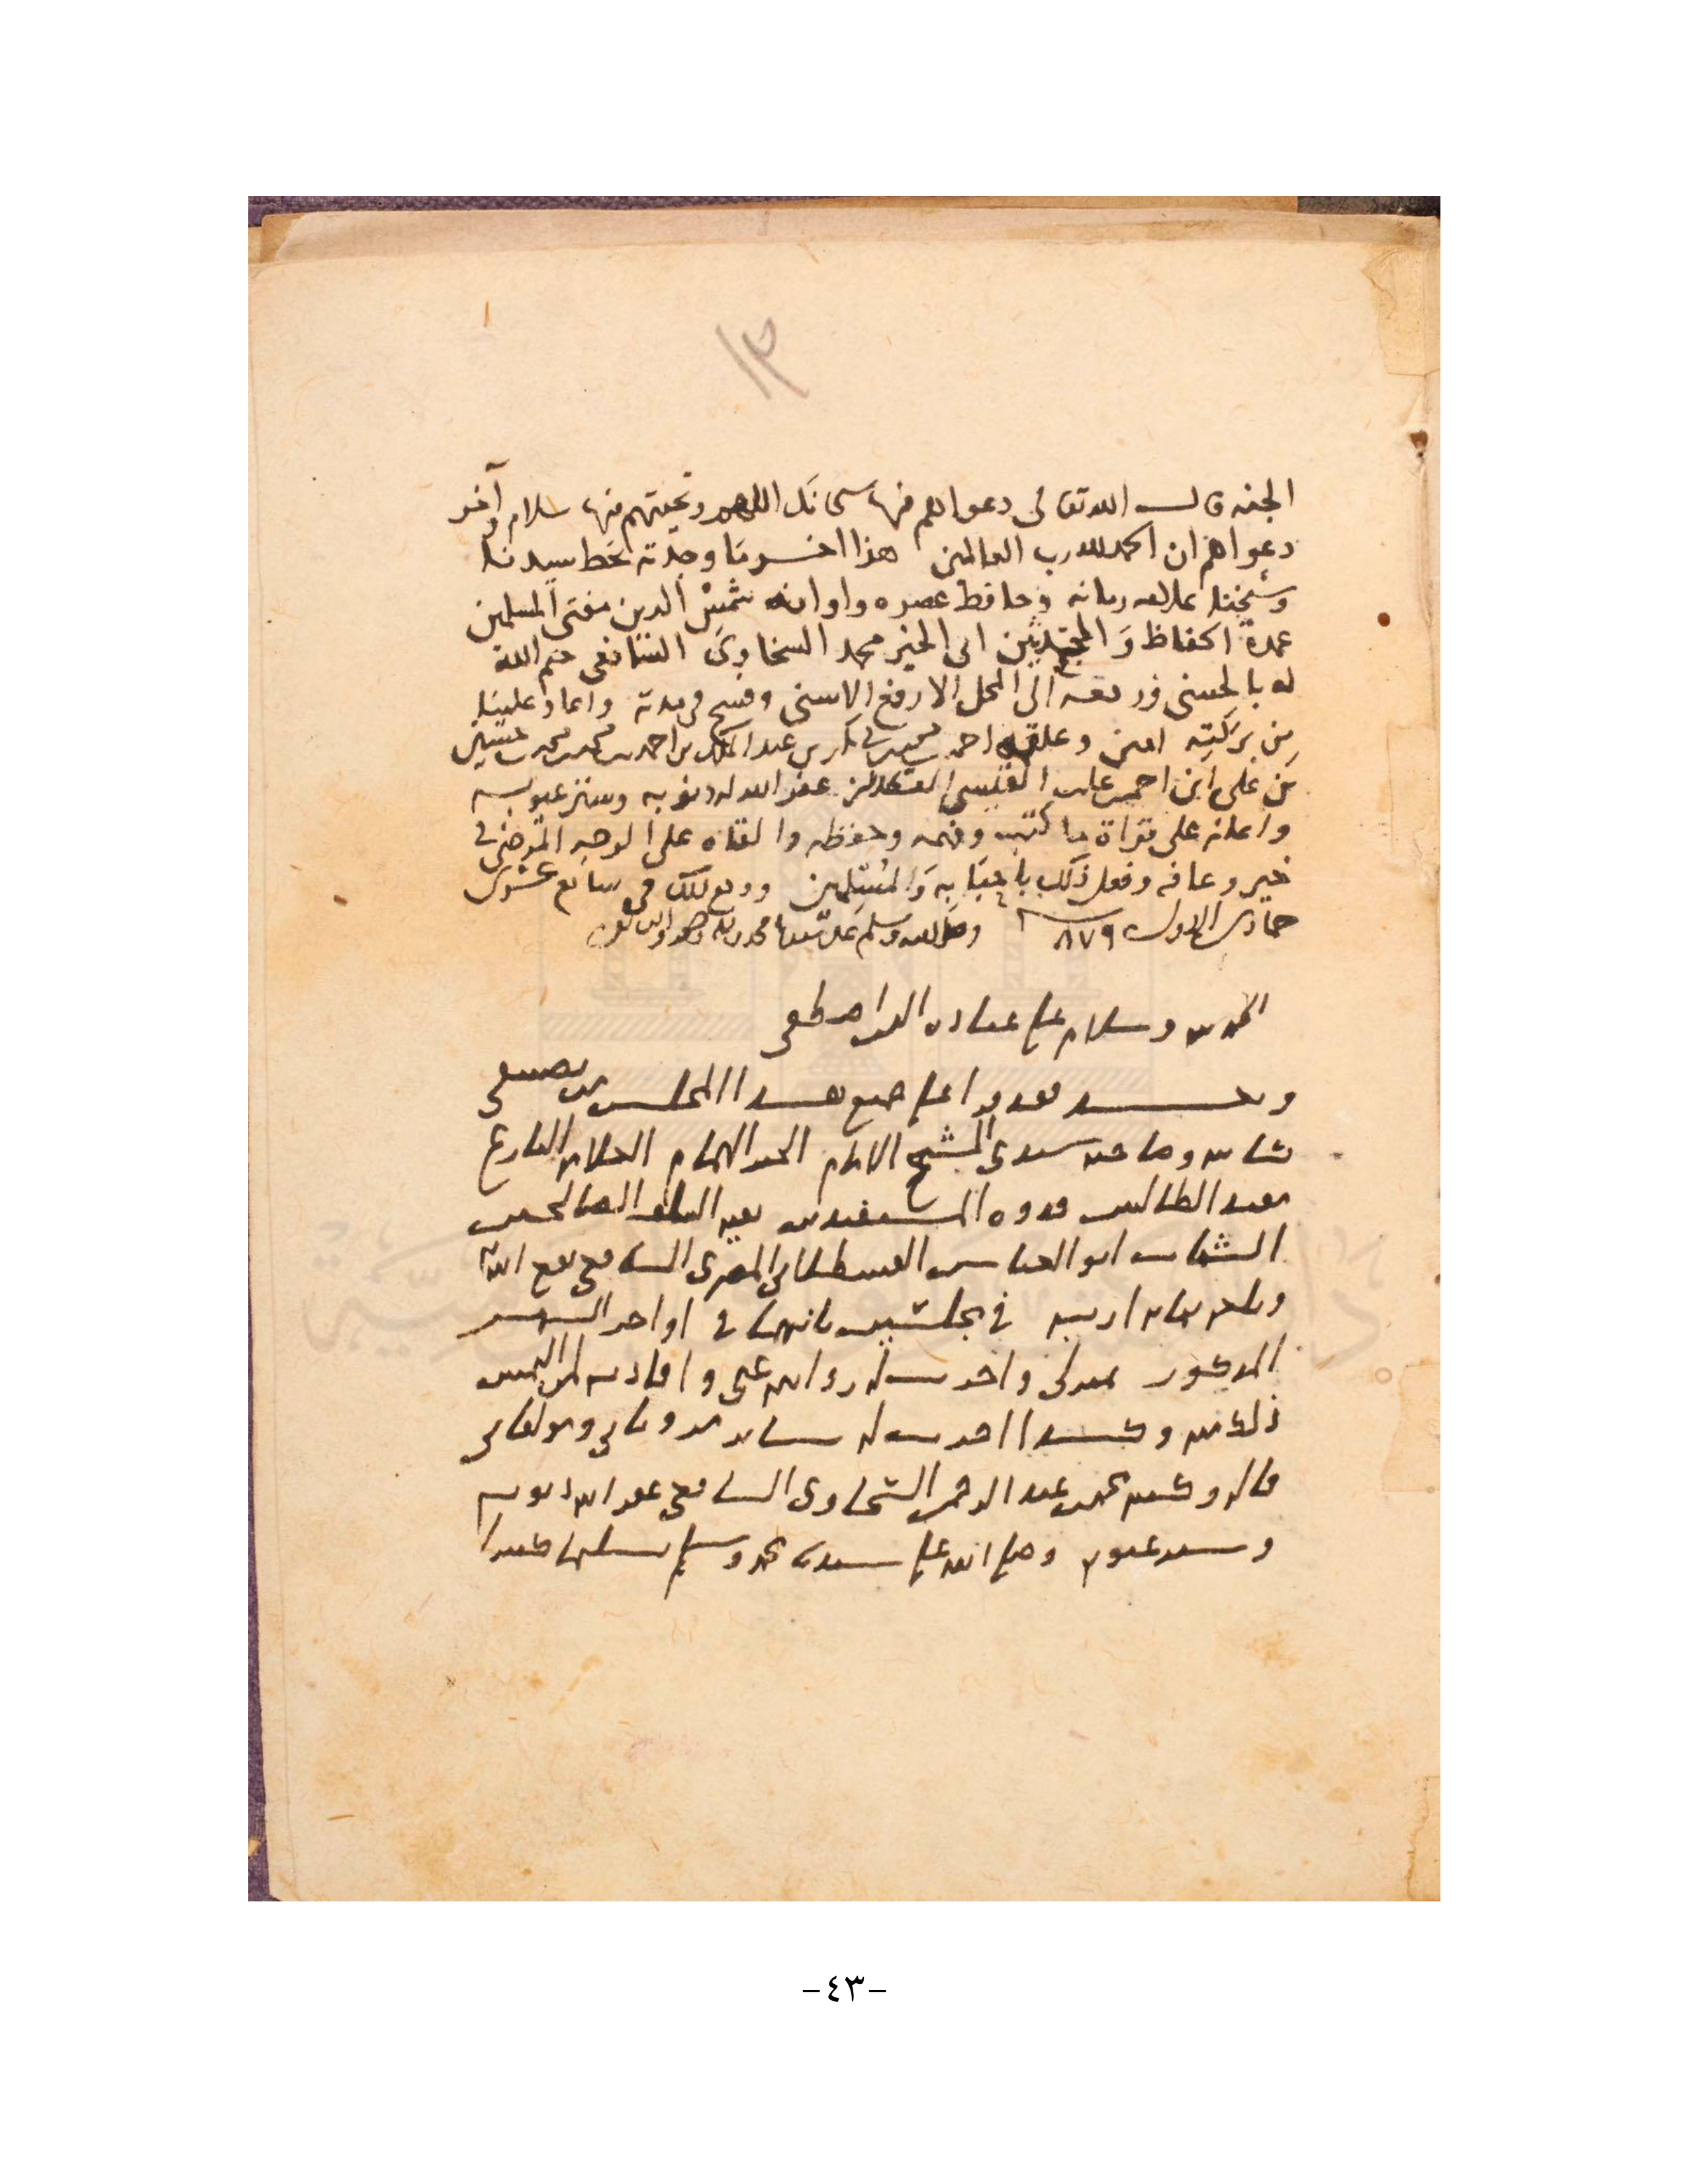 ١٣
الجنه قال الله تعالى دعواهم فيها سبحانك اللهم وتحيتهم فيها سلام وآخر
دعواهم ان الحمد لله رب العالمين هذا اخر ما وجدته بخط سيدنا
وشيخنا علامه زمانه وحافظ عصره واوانه شمس الدين مفتي المسلمين
عمدة الحفاظ والمجتهدين ابي الخير محمد السخاوي الشافعي ختم الله
له بالحسنى ورفعه الى المحل الارفع الاسنى وفسح في مدته واعاد علينا
من بركته امين وعلقه احمد بن محمد بن ابي بكر بن عبد الملك بن احمد بن محمد بن محمد بن حسين
بن علي ابن احمد القيسي القسطلاني غفر الله له ذنوبه وستر عيوبه
واعانه على قراة ما كتب وفهمه وحفظه والقاه على الوجه المرضي في
خير وعافيه وفعل ذلك باحبابه والمسلمين ووقع ذلك في سابع عشري
جمادى الاول سنة ٨٧٩ وصلى الله وسلم على سيدنا محمد
الحمد لله وسلام على عباده الذين اصطفى
وبعد فقد قرا علي جميع هذا المجلس من تصنيفي
كاتبه وصاحبه سيدي الشيخ الامام الهمام العلامه البارع
مفيد الطالبين قدوه المستفيدين بقيه السلف الصالحين
الشهاب ابو العباس القسطلاني المصري الشافعي نفع الله به
وبلغه نهايه اربه في مجلسين ثانيهما في اواخر الشهر
المذكور عندي واجزت له روايته عني وافادته لمن التمس
ذلك منه وكذا اجزت له ساير مروياتي ومولفاتي
قاله وكتبه محمد بن عبد الرحمن السخاوي الشافعي غفر الله ذنوبه
وستر عيوبه وصلى الله على سيدنا محمد وسلم تسليما كثيرا
-٤٣-